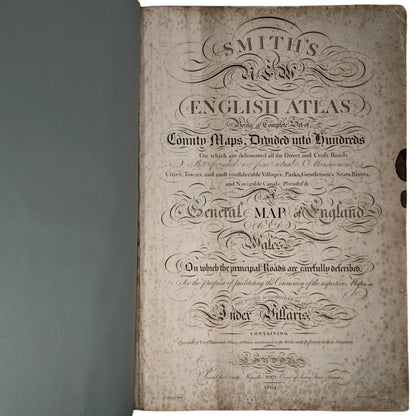 SMITH'S
NEW
ENGLISH ATLAS
Being a Complete Set of
County Maps, Divided into Hundreds
On which are delineated all the Direct and Cross Roads
Cities, Towns, and most considerable Villages, Parks, Gentlemen's Seats, Rivers,
and Navigable Canals: Preceded by
A
General MAP of England
AND
Wales
On which the principal Roads are carefully described,
For the purpose of facilitating the Connexion of the respective Maps
Index Villaris,
CONTAINING
LONDON